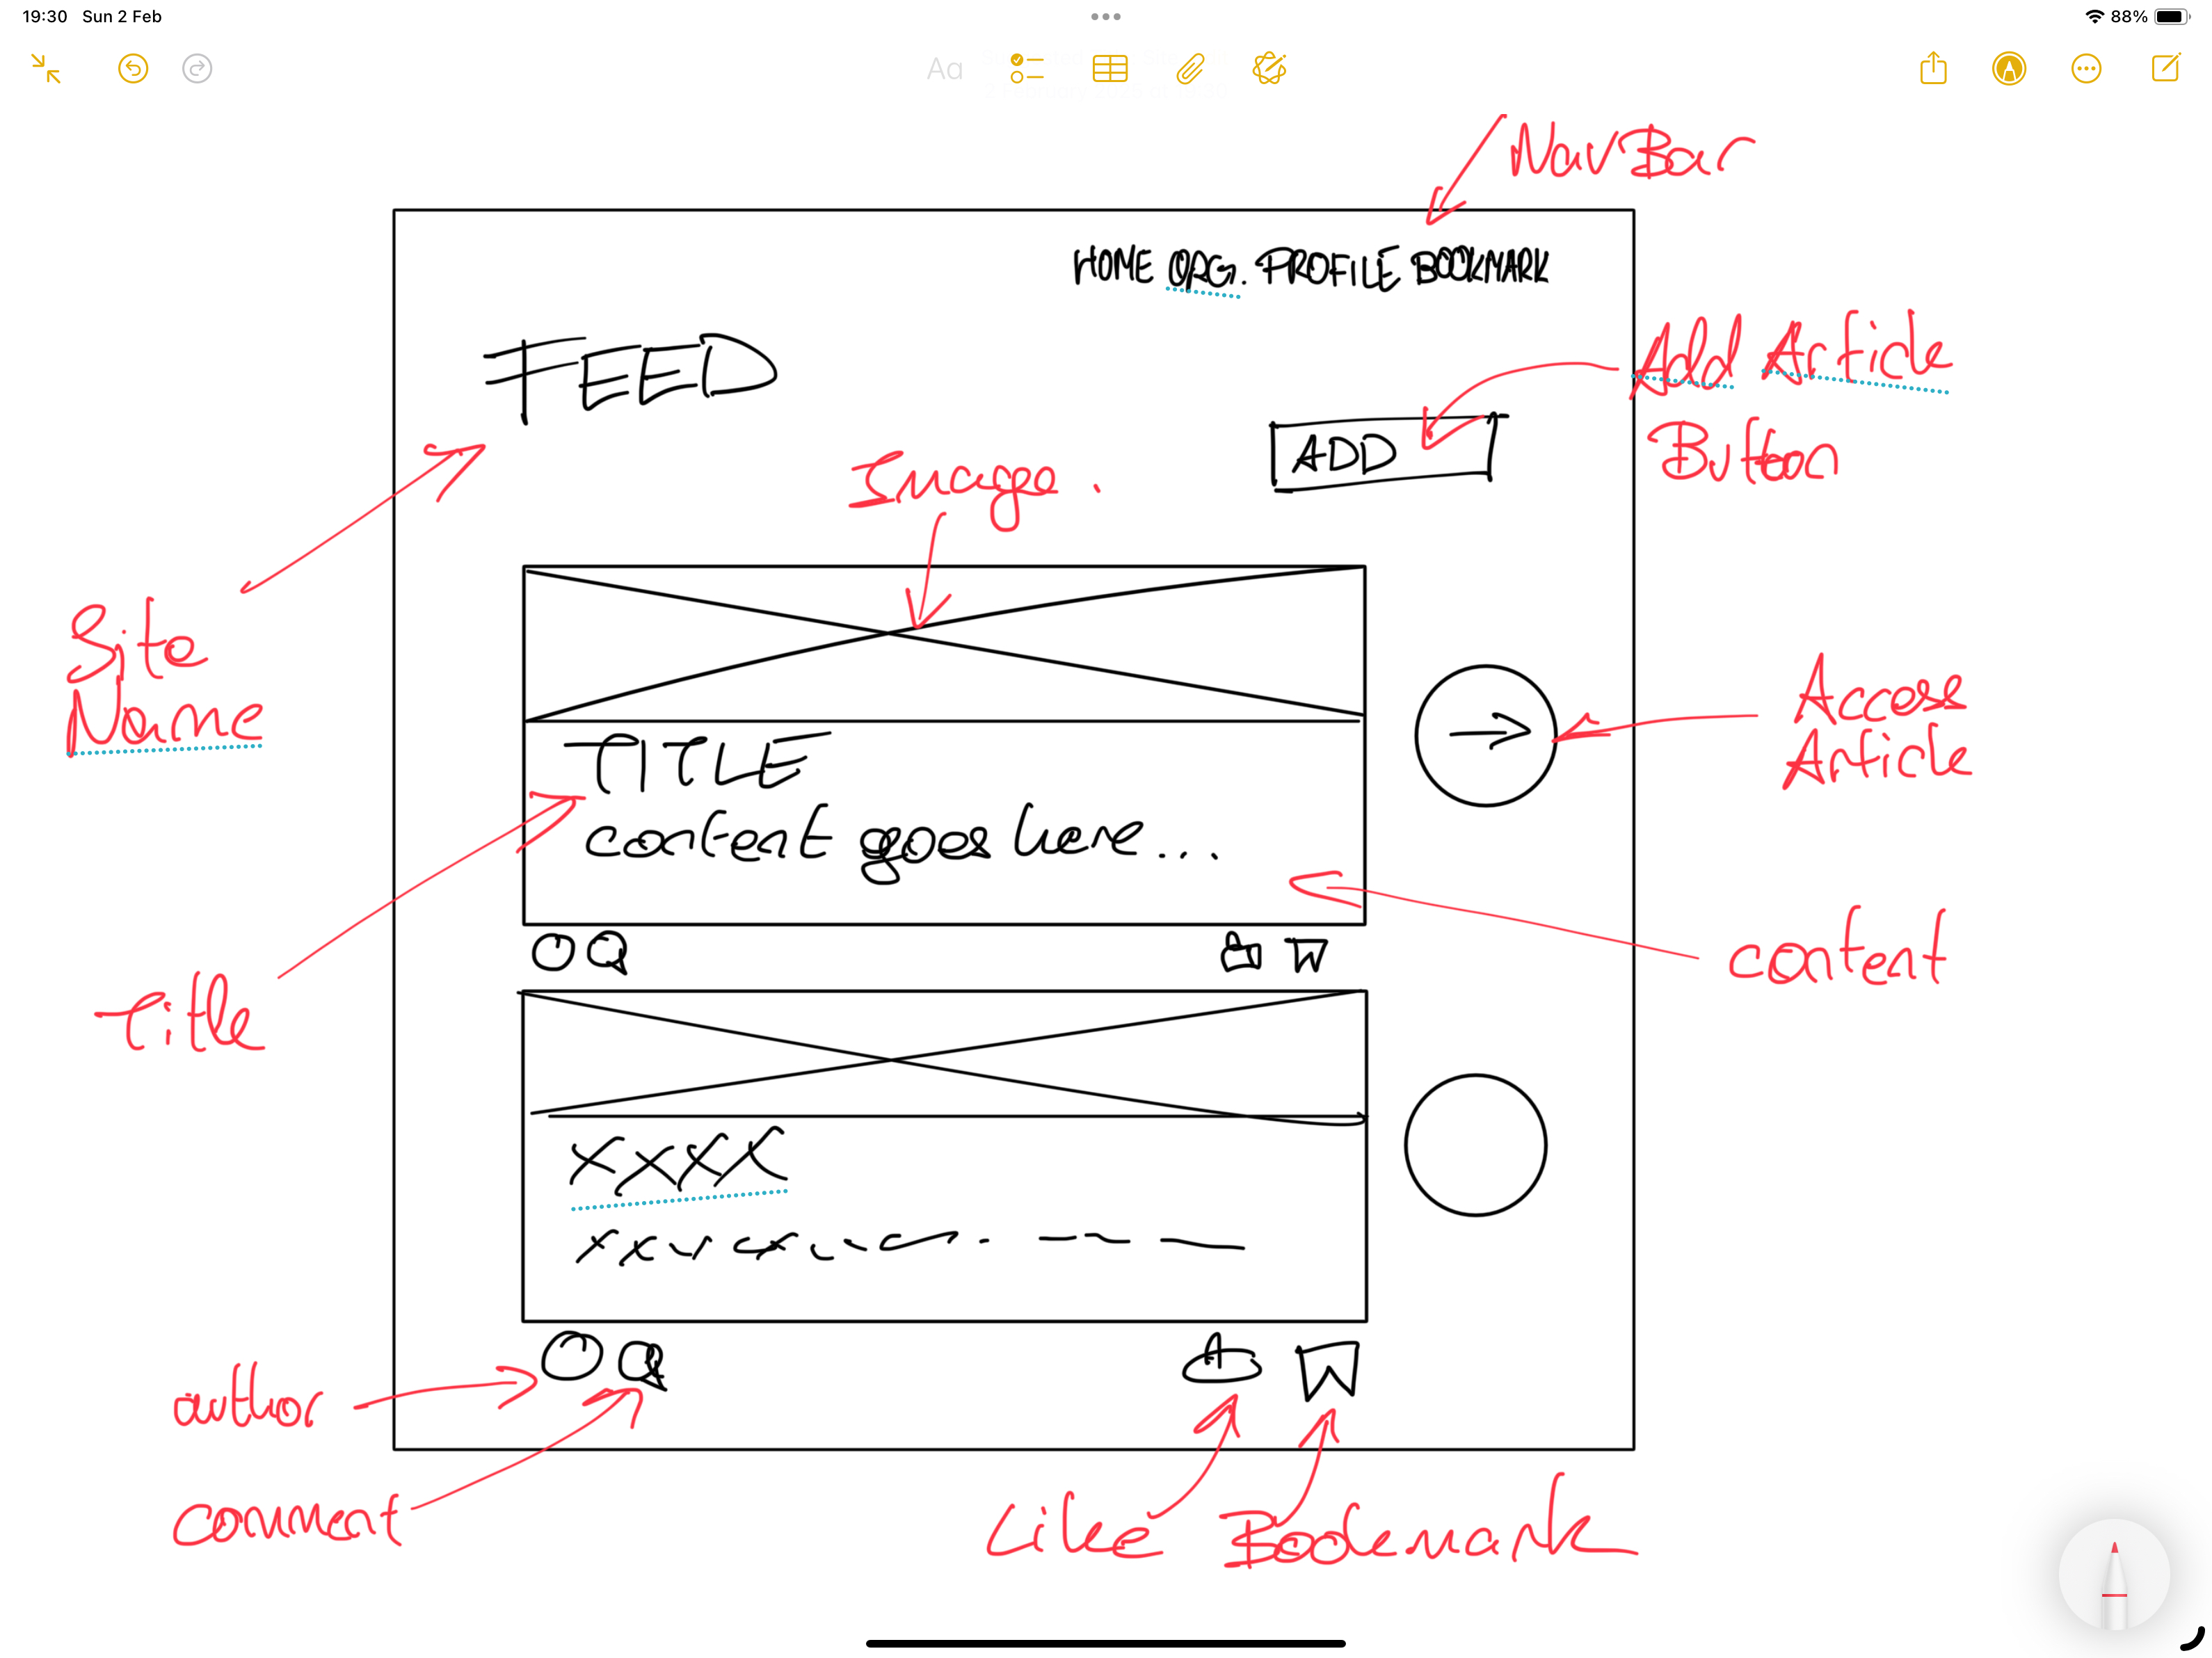 19:30 Sun 2 Feb
88%
Aa
NavBar
HOME ORG. PROFILE BOOKMARK
FEED
Add Article
Button
ADD
Image.
Site
Name
TITLE
content goes here...
Access
Article
content
Title
XXXX
author
comment
Like Bookmark